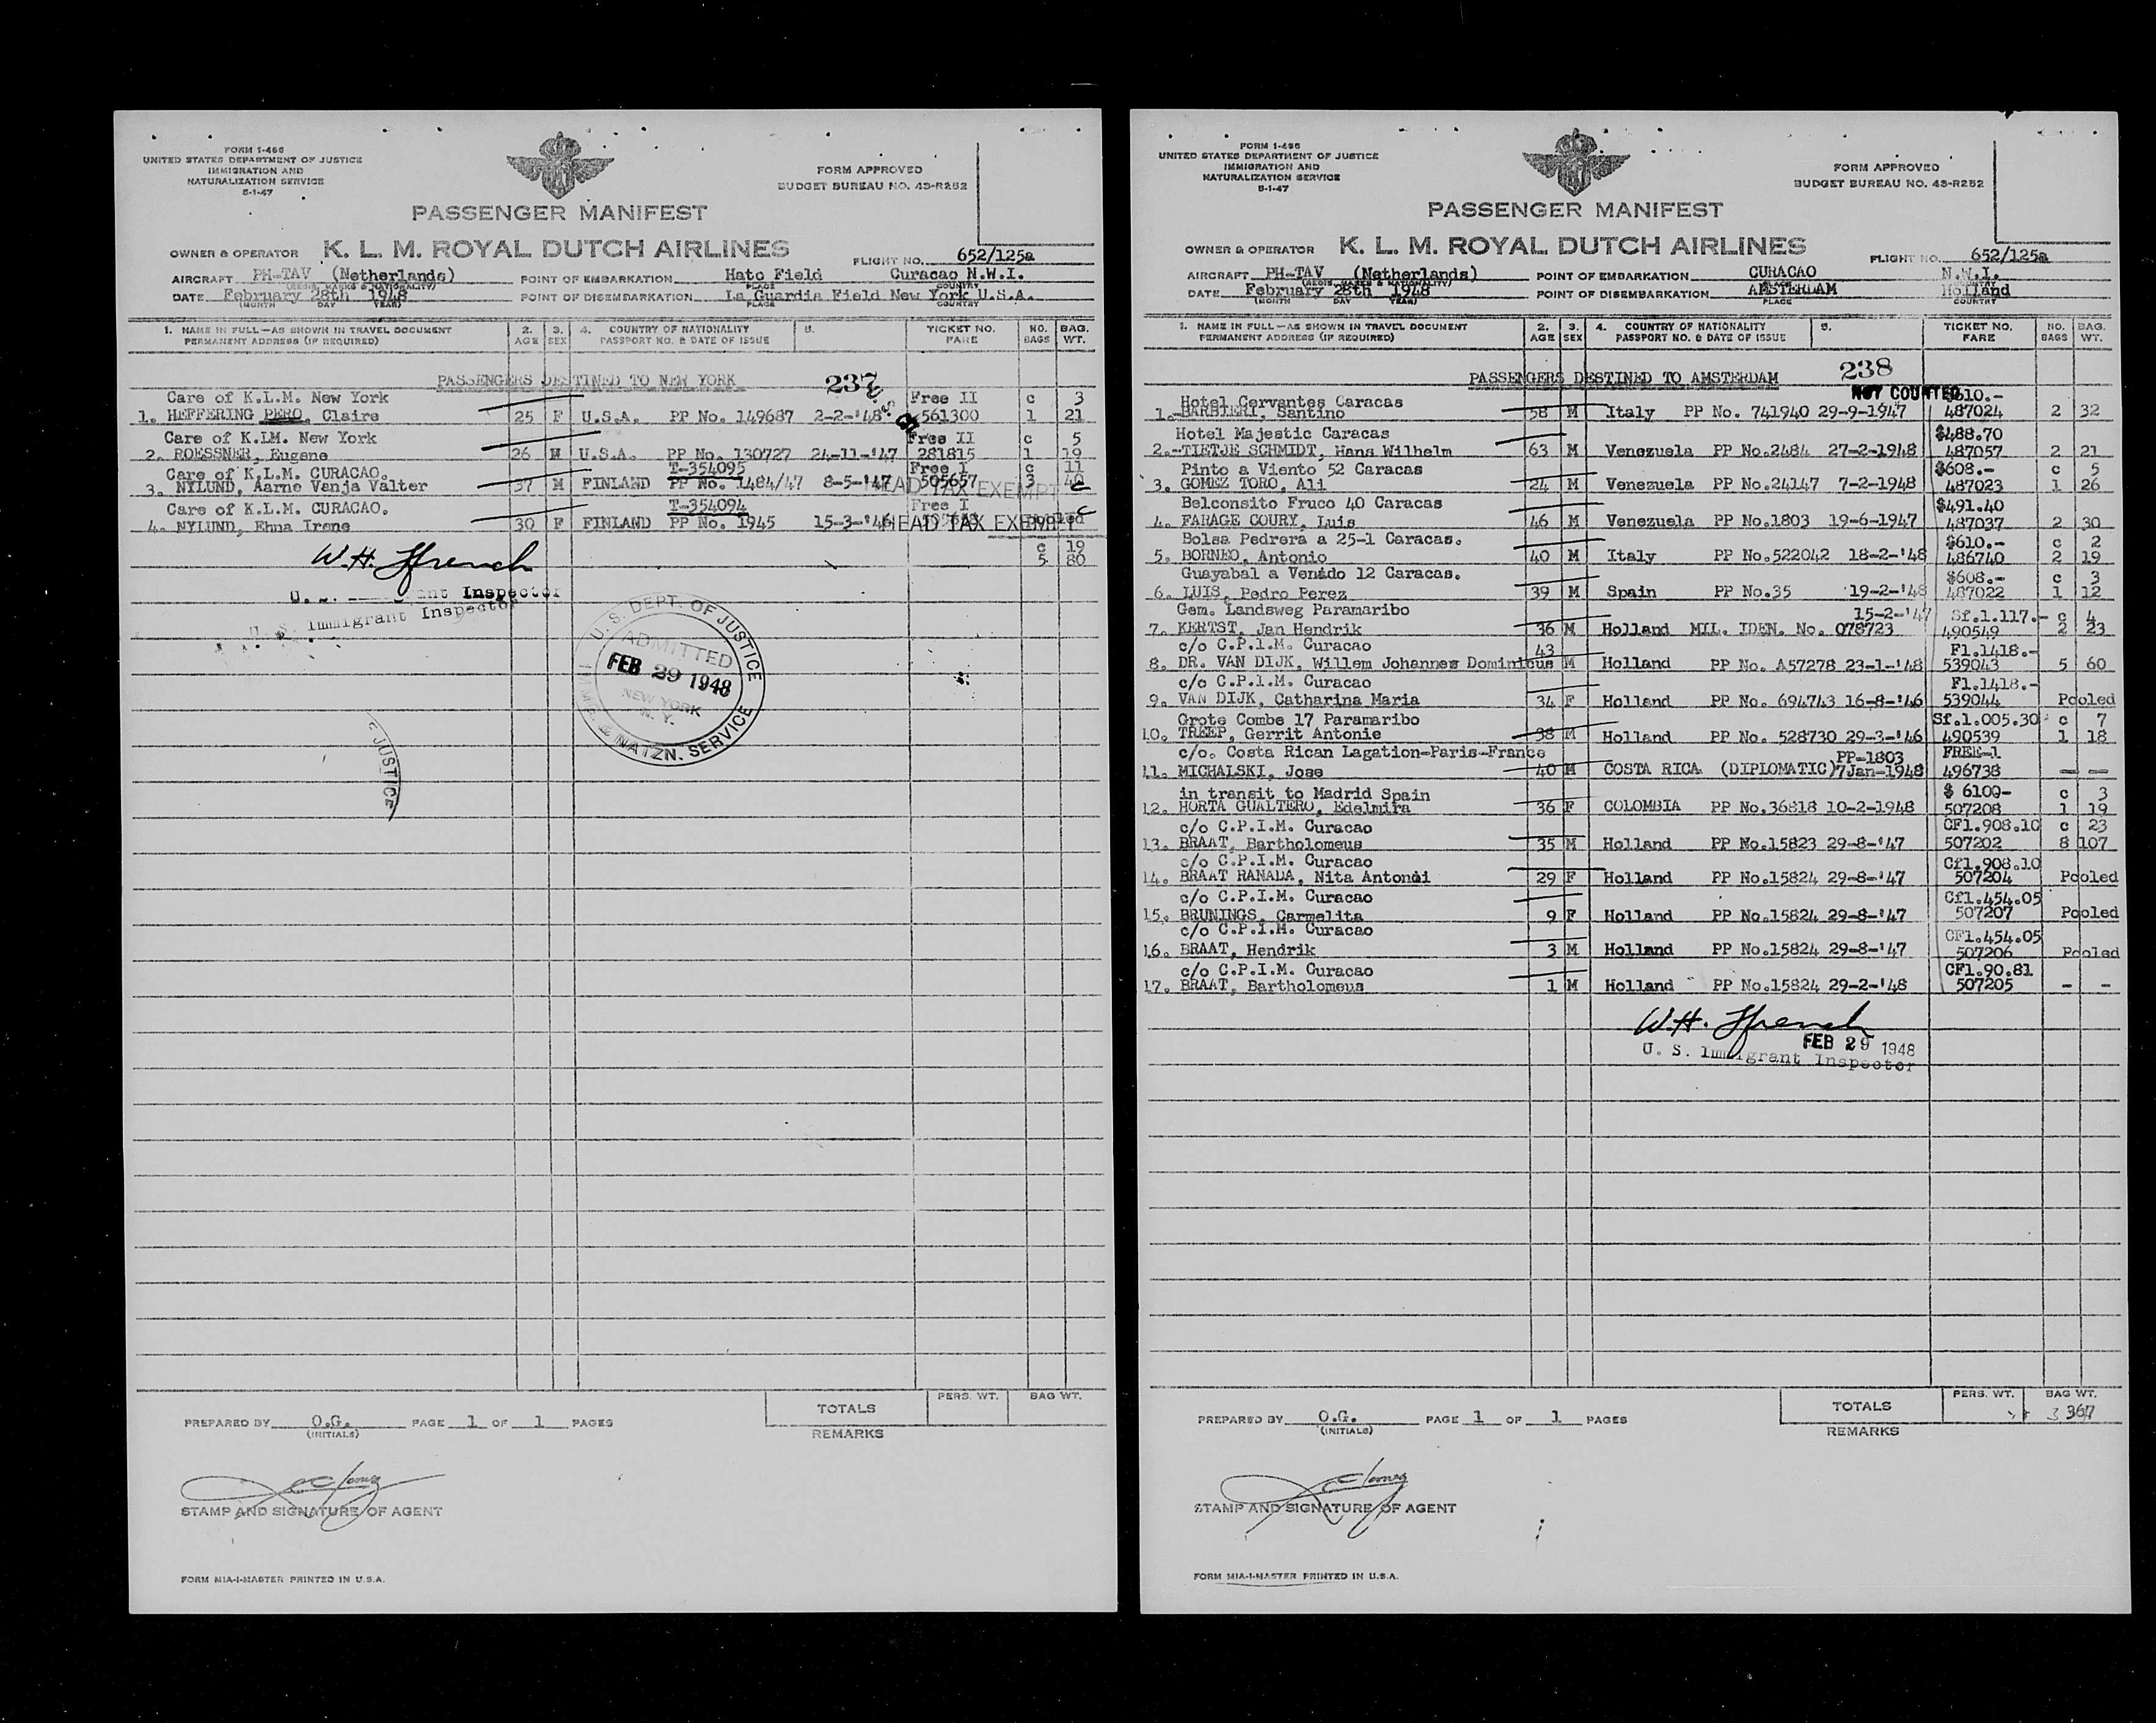 FORM I-466
UNITED STATES DEPARTMENT OF JUSTICE
IMMIGRATION AND
NATURALIZATION SERVICE
5-1-47
FORM APPROVED
BUDGET BUREAU NO. 43-R252
PASSENGER MANIFEST
OWNER & OPERATOR K. L. M. ROYAL DUTCH AIRLINES
FLIGHT NO. 652/125a
AIRCRAFT PH-TAV (Netherlands) POINT OF EMBARKATION Hato Field Curacao N.W.I.
(REGIS. MARKS & NATIONALITY) PLACE COUNTRY
DATE February 28th 1948 POINT OF DISEMBARKATION La Guardia Field New York U.S.A.
(MONTH DAY YEAR) PLACE COUNTRY
1. NAME IN FULL—AS SHOWN IN TRAVEL DOCUMENT 2. 3. 4. COUNTRY OF NATIONALITY 5. TICKET NO. NO. BAG.
PERMANENT ADDRESS (IF REQUIRED) AGE SEX PASSPORT NO. & DATE OF ISSUE FARE BAGS WT.
PASSENGERS DESTINED TO NEW YORK 237
Care of K.L.M. New York Free II c 3
1. HEFFERING PERO, Claire 25 F U.S.A. PP No. 149687 2-2-'48 561300 1 21
Care of K.LM. New York Free II c 5
2. ROESSNER, Eugene 26 M U.S.A. PP No. 130727 24-11-'47 281815 1 19
Care of K.L.M. CURACAO. T-354095 Free I c 11
3. NYLUND, Aarne Vanja Valter 37 M FINLAND PP No. 1484/47 8-5-'47 505657 3 40
HEAD TAX EXEMPT
Care of K.L.M. CURACAO. T-354094 Free I
4. NYLUND, Ehna Irene 30 F FINLAND PP No. 1945 15-3-'46
HEAD TAX EXEMPT
c 19
5 80
W.H. Ffrench
Inspector
U. S. Immigrant Inspector
U. S. DEPT. OF JUSTICE
ADMITTED
FEB 29 1948
NEW YORK
N. Y.
IMMG. & NATZN. SERVICE
JUSTICE
TOTALS PERS. WT. BAG WT.
PREPARED BY O.G. PAGE 1 OF 1 PAGES
(INITIALS)
REMARKS
STAMP AND SIGNATURE OF AGENT
FORM MIA-I-MASTER PRINTED IN U.S.A.
FORM I-466
UNITED STATES DEPARTMENT OF JUSTICE
IMMIGRATION AND
NATURALIZATION SERVICE
5-1-47
FORM APPROVED
BUDGET BUREAU NO. 43-R252
PASSENGER MANIFEST
OWNER & OPERATOR K. L. M. ROYAL DUTCH AIRLINES
FLIGHT NO. 652/125a
AIRCRAFT PH-TAV (Netherlands) POINT OF EMBARKATION CURACAO N.W.I.
(REGIS. MARKS & NATIONALITY) PLACE COUNTRY
DATE February 28th 1948 POINT OF DISEMBARKATION AMSTERDAM Holland
(MONTH DAY YEAR) PLACE COUNTRY
1. NAME IN FULL—AS SHOWN IN TRAVEL DOCUMENT 2. 3. 4. COUNTRY OF NATIONALITY 5. TICKET NO. NO. BAG.
PERMANENT ADDRESS (IF REQUIRED) AGE SEX PASSPORT NO. & DATE OF ISSUE FARE BAGS WT.
PASSENGERS DESTINED TO AMSTERDAM 238
NOT COUNTED
Hotel Cervantes Caracas $610.-
1. BARBIERI, Santino 58 M Italy PP No. 741940 29-9-1947 487024 2 32
Hotel Majestic Caracas $488.70
2. TIETJE SCHMIDT, Hans Wilhelm 63 M Venezuela PP No.2484 27-2-1948 487057 2 21
Pinto a Viento 52 Caracas $608.- c 5
3. GOMEZ TORO, Ali 24 M Venezuela PP No.24147 7-2-1948 487023 1 26
Belconsito Fruco 40 Caracas $491.40
4. FARAGE COURY, Luis 46 M Venezuela PP No.1803 19-6-1947 487037 2 30
Bolsa Pedrera a 25-1 Caracas. $610.- c 2
5. BORNEO, Antonio 40 M Italy PP No.522042 18-2-'48 486740 2 19
Guayabal a Venado 12 Caracas. $608.- c 3
6. LUIS, Pedro Perez 39 M Spain PP No.35 19-2-'48 487022 1 12
Gem. Landsweg Paramaribo 15-2-'47 Sf.1.117.- c 4
7. KERTST, Jan Hendrik 36 M Holland MIL. IDEN. No. 078723 490549 2 23
c/o C.P.I.M. Curacao 43 Fl.1418.-
8. DR. VAN DIJK, Willem Johannes Dominicus M Holland PP No. A57278 23-1-'48 539043 5 60
c/o C.P.I.M. Curacao Fl.1418.-
9. VAN DIJK, Catharina Maria 34 F Holland PP No. 694743 16-8-'46 539044 Pooled
Grote Combe 17 Paramaribo Sf.1.005.30 c 7
10. TREEP, Gerrit Antonie 38 M Holland PP No. 528730 29-3-'46 490539 1 18
c/o. Costa Rican Lagation-Paris-France PP-1803 FREE-1
11. MICHALSKI, Jose 40 M COSTA RICA (DIPLOMATIC) 7Jan-1948 496738 -- --
in transit to Madrid Spain $ 6100- c 3
12. HORTA GUALTERO, Edelmira 36 F COLOMBIA PP No.36818 10-2-1948 507208 1 19
c/o C.P.I.M. Curacao CFl.908.10 c 23
13. BRAAT, Bartholomeus 35 M Holland PP No.15823 29-8-'47 507202 8 107
c/o C.P.I.M. Curacao Cfl.908.10
14. BRAAT RANADA, Nita Antonai 29 F Holland PP No.15824 29-8-'47 507204 Pooled
c/o C.P.I.M. Curacao Cfl.454.05
15. BRUNINGS, Carmelita 9 F Holland PP No.15824 29-8-'47 507207 Pooled
c/o C.P.I.M. Curacao CFl.454.05
16. BRAAT, Hendrik 3 M Holland PP No.15824 29-8-'47 507206 Pooled
c/o C.P.I.M. Curacao CFl.90.81
17. BRAAT, Bartholomeus 1 M Holland PP No.15824 29-2-'48 507205 - -
W.H. Ffrench
FEB 29 1948
U. S. Immigrant Inspector
TOTALS PERS. WT. BAG WT.
367
PREPARED BY O.G. PAGE 1 OF 1 PAGES
(INITIALS)
REMARKS
STAMP AND SIGNATURE OF AGENT
FORM MIA-I-MASTER PRINTED IN U.S.A.